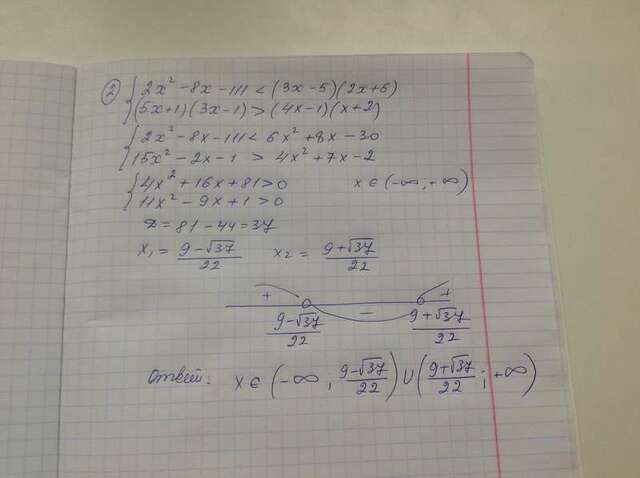 ② { 2x² - 8x - 111 < (3x-5)(2x+6)
(5x+1)(3x-1) > (4x-1)(x+2)
{ 2x² - 8x - 111 < 6x² + 8x - 30
15x² - 2x - 1 > 4x² + 7x - 2
{ 4x² + 16x + 81 > 0 x ∈ (-∞; +∞)
11x² - 9x + 1 > 0
D = 81 - 44 = 37
x₁ = (9-√37)/22 x₂ = (9+√37)/22
+ − +
(9-√37)/22 (9+√37)/22
Ответ: x ∈ (-∞; (9-√37)/22) ∪ ((9+√37)/22; +∞)